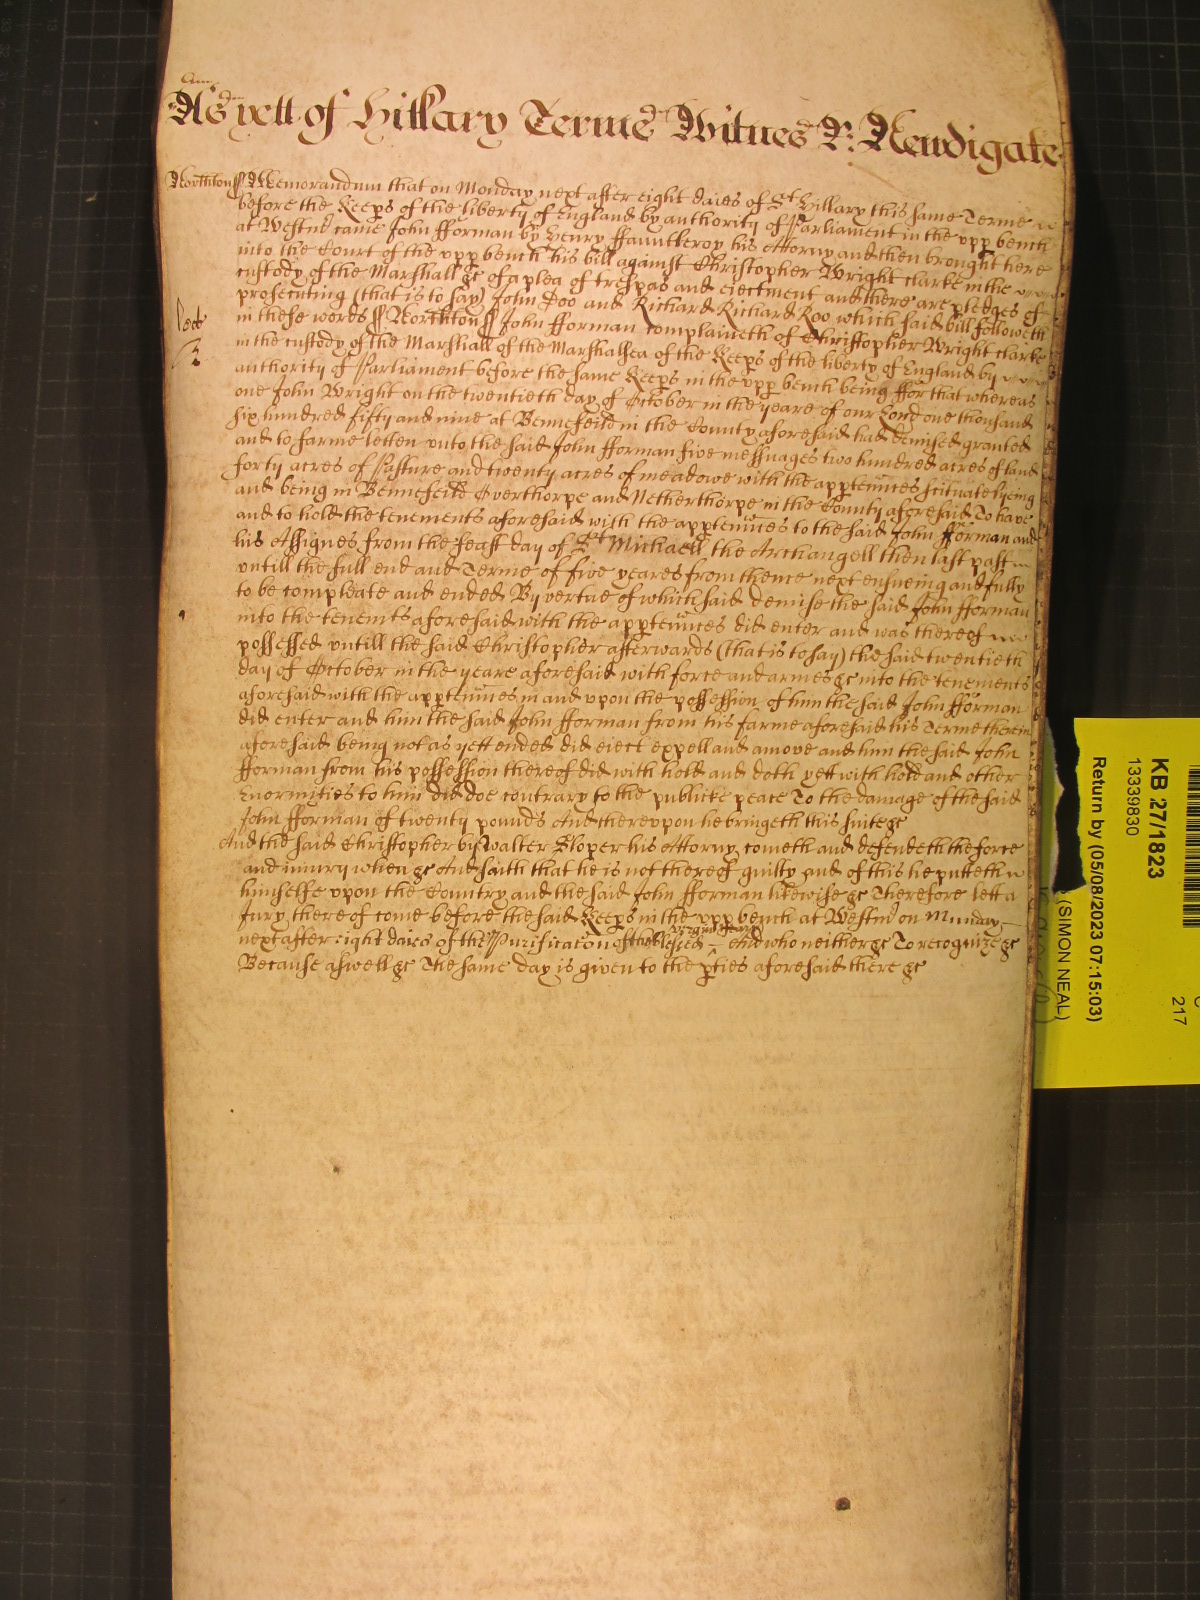 As yett of Hillary Terme Witnes R: Newdigate
Northton ss Memorandum that on Monday next after eight daies of St Hillary this same Terme
before the Keeps of the liberty of England by authority of Parliament in the upp bench
at Westmr came John fforman by Henry ffauntleroy his Attorny and then brought here
into the Court of the upp bench his bill against Christopher Wright clarke in the
custody of the Marshall &c of a plea of trespas and eiectment and there are pledges of
prosecuting (that is to say) John Doo and Richard Richard Roo which said bill followeth
in these words ss Northton ss John fforman complaineth of Christopher Wright clarke
in the custody of the Marshall of the Marshalsea of the Keeps of the liberty of England by
authority of Parliament before the same Keeps in the upp bench being ffor that whereas
one John Wright on the twentieth day of October in the yeare of our Lord one thousand
six hundred fifty and nine at Bennefeild in the County aforesaid had demised granted
and to farme letten unto the said John fforman five messuages two hundred acres of land
forty acres of Pasture and twenty acres of meadowe with the apptennces scituate lyeing
and being in Bennefeild Overthorpe and Netherthorpe in the County aforesaid To have
and to hold the tenements aforesaid with the apptennces to the said John fforman and
his Assignes from the feast day of St Michaell the Archangell then last past
untill the full end and Terme of five yeares from thence next ensueing and fully
to be compleate and ended By vertue of which said demise the said John fforman
into the tenemts aforesaid with the apptennces did enter and was thereof
possessed untill the said Christopher afterwards (that is to say) the said twentieth
day of October in the yeare aforesaid with force and armes &c into the tenements
aforesaid with the apptennces in and upon the possession of him the said John fforman
did enter and him the said John fforman from his farme aforesaid his Terme therein
aforesaid being not as yett ended did eiect expell and amove and him the said John
fforman from his possession thereof did with hold and doth yett with hold and other
Enormities to him did doe contrary to the publicke peace To the damage of the said
John fforman of twenty pounds And thereupon he bringeth this suite &c
And the said Christopher by Walter Sloper his Attorny cometh and defendeth the force
and iniury when &c And saith that he is not thereof guilty and of this he putteth
himselfe upon the Country and the said John fforman likewise &c Therefore lett a
Jury thereof come before the said Keeps in the upp bench at Westmr on Munday
next after eight daies of the Purificaton of the blessed virgin Mary And who neither &c To recognize &c
Because aswell &c The same day is given to the pties aforesaid there &c
KB 27/1823
13339830
Return by (05/08/2023 07:15:03)
(SIMON NEAL)
217